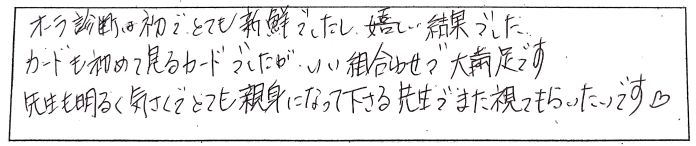 オーラ診断は初でとても新鮮でしたし、嬉しい結果でした
カードも初めて見るカードでしたが、いい組合わせで大満足です
先生も明るく気さくでとても親身になって下さる先生でまた視てもらいたいです♡